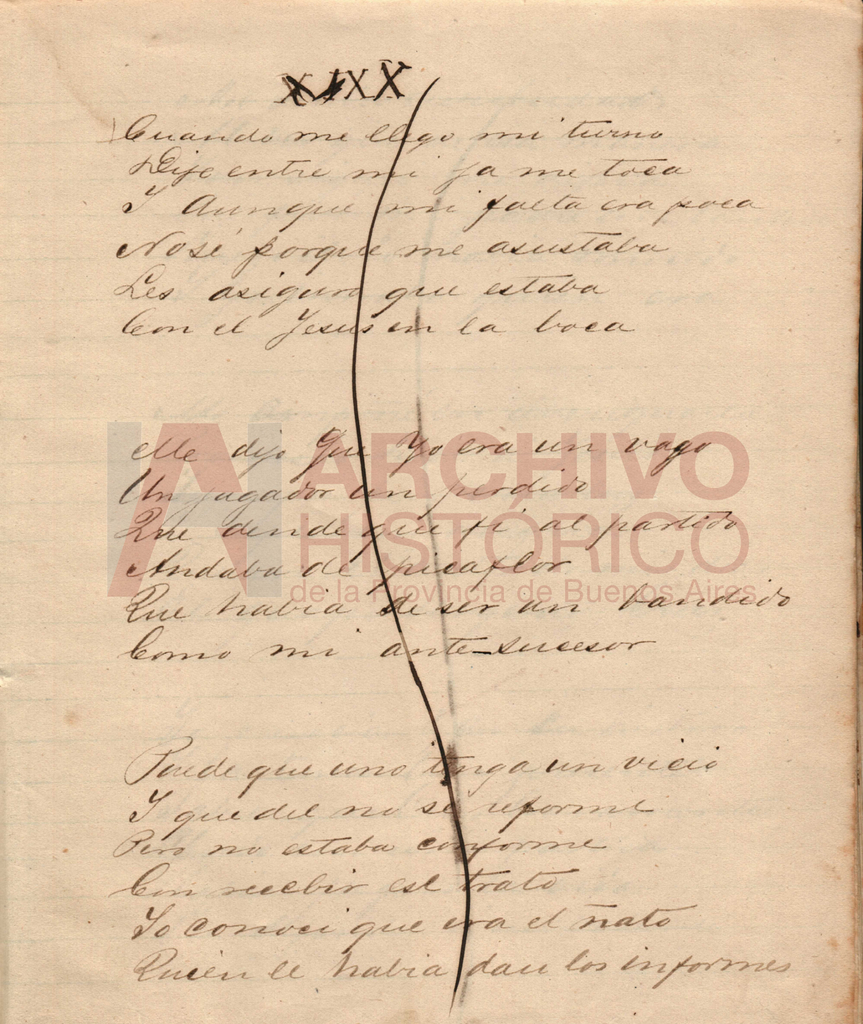 XIXX
Cuando me llego mi turno
Dije entre mi ja me toca
I Aunque mi falta era poca
No sé porque me asustaba
Les asiguro que estaba
Con el Jesus en la boca
Me dijo Que Yo era un vago
Un jugador un perdido
Que dende que fi al partido
Andaba de picaflor
Que habia de ser un bandido
Como mi ante-sucesor
Puede que uno tenga un vicio
I que del no se reforme
Pero no estaba conforme
Con recebir ese trato
Yo conoci que era el ñato
Quien le habia dau los informes
ARCHIVO
HISTÓRICO
de la Provincia de Buenos Aires